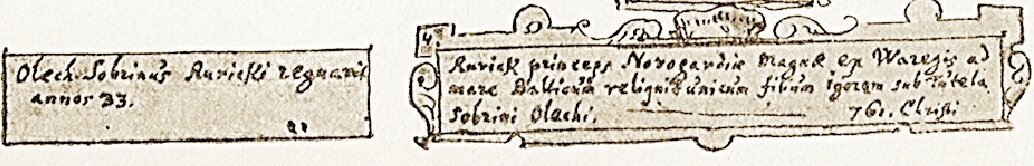 Olech Sobrinus Ruricki regnavit
annos 33.
Rurick princeps Novogardiæ magnæ ex Waregis ad
mare Balticum reliquit unicum filium Igorem sub Tutela
Sobrini Olechi. 761. Christi